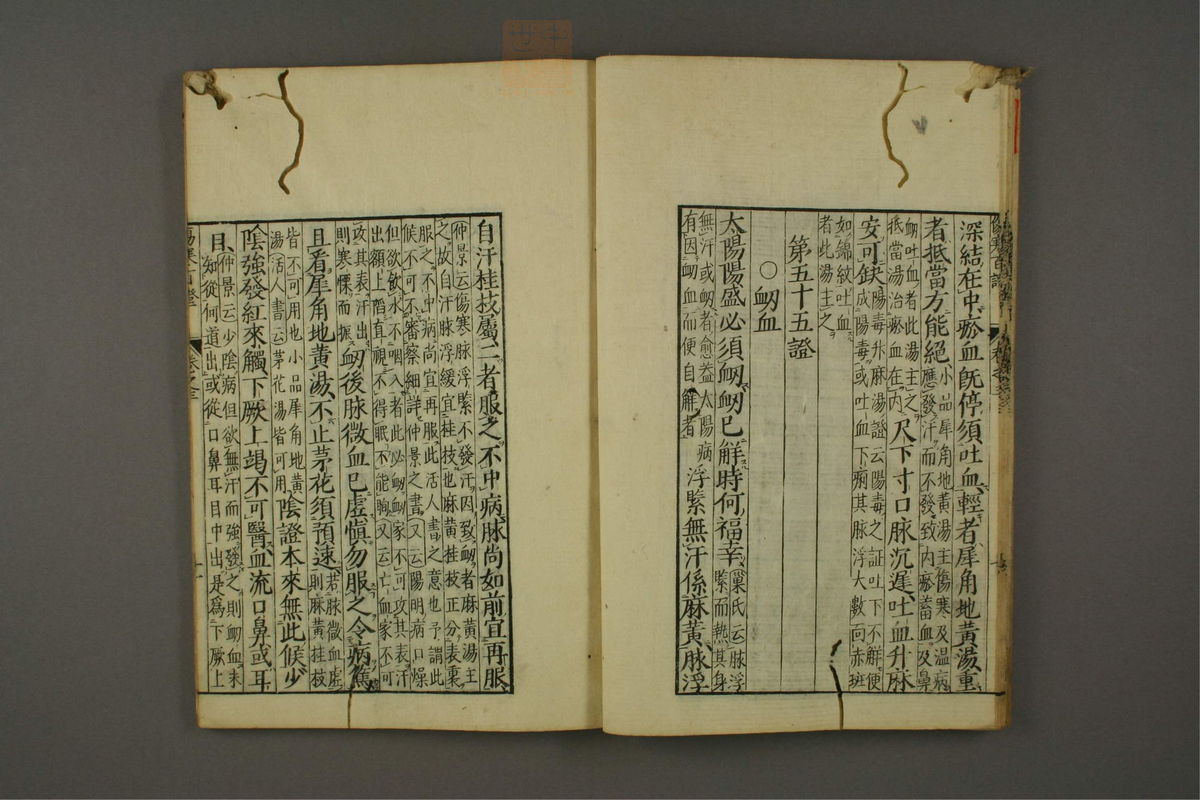 深結在中瘀血旣停須吐血輕者犀角地黃湯重
者抵當方能絕小品犀角地黃湯主傷寒及温病
應發汗而不發致内瘀蓄血及鼻
衂吐血者此湯主之
抵當湯治瘀血在内尺下寸口脉沉遲吐血升麻
安可缺陽毒升麻湯證云陽毒之証吐下不解便
成陽毒或吐血下痢其脉浮大數面赤班
如錦紋吐血
者此湯主之
第五十五證
○衂血
太陽陽盛必須衂衂已解時何福幸巢氏云脉浮
緊而熱其身
無汗或衂者愈益太陽病
有因衂血而便自解者浮緊無汗係麻黃脉浮
自汗桂枝屬二者服之不中病脉尚如前宜再服
仲景云傷寒脉浮緊不發汗因致衂者麻黃湯主
之故自汗脉浮緩宜桂枝也麻黄桂枝正分表裏
服之不中病尚宜再服此活人書之意也予謂此
候不可不審察細詳仲景之書又云陽明病口燥
但欲飲水不咽入者此必衂衂家不可攻其表汗
出額上䧟直視不得眠不能眴又云亡血家不可
攻其表汗出
則寒慄而振衂後脉微血已虛愼勿服之令病篤
且看犀角地黃湯不止茅花須預速若脉微血虛
則麻黄桂枝
皆不可用也小品犀角地黄
湯活人書云茅花湯皆可用陰證本來無此候少
陰強發紅來觸下厥上竭不可醫血流口鼻或耳
目仲景云少陰病但欲無汗而強發之則衂血未
知從何道出或從口鼻耳目中出是爲下厥上